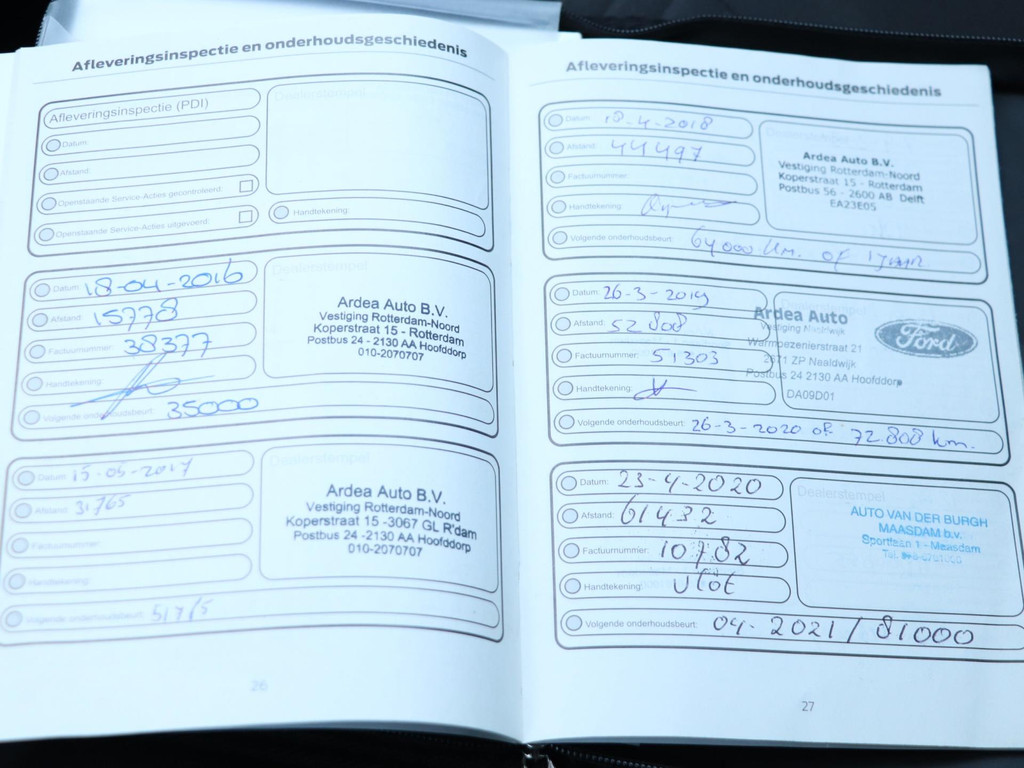 Afleveringsinspectie en onderhoudsgeschiedenis
Afleveringsinspectie (PDI)
Datum:
Afstand:
Openstaande Service-Acties gecontroleerd:
Openstaande Service-Acties uitgevoerd:
Dealerstempel
Handtekening:
Datum: 18-04-2016
Afstand: 15778
Factuurnummer: 38377
Handtekening:
Volgende onderhoudsbeurt: 35000
Dealerstempel
Ardea Auto B.V.
Vestiging Rotterdam-Noord
Koperstraat 15 - Rotterdam
Postbus 24 - 2130 AA Hoofddorp
010-2070707
Datum: 15-05-2017
Afstand: 31765
Factuurnummer:
Handtekening:
Volgende onderhoudsbeurt: 51765
Dealerstempel
Ardea Auto B.V.
Vestiging Rotterdam-Noord
Koperstraat 15 -3067 GL R'dam
Postbus 24 -2130 AA Hoofddorp
010-2070707
26
Afleveringsinspectie en onderhoudsgeschiedenis
Datum: 18-4-2018
Afstand: 44497
Factuurnummer:
Handtekening:
Volgende onderhoudsbeurt: 64000 km. of 1 jaar
Dealerstempel
Ardea Auto B.V.
Vestiging Rotterdam-Noord
Koperstraat 15 - Rotterdam
Postbus 56 - 2600 AB Delft
EA23E05
Datum: 26-3-2019
Afstand: 52808
Factuurnummer: 51303
Handtekening:
Volgende onderhoudsbeurt: 26-3-2020 of 72.808 km.
Dealerstempel
Ardea Auto
Vestiging Naaldwijk
Warmoezenierstraat 21
2671 ZP Naaldwijk
Postbus 24 2130 AA Hoofddorp
DA09D01
Ford
Datum: 23-4-2020
Afstand: 61432
Factuurnummer: 10782
Handtekening:
Volgende onderhoudsbeurt: 04-2021 / 81000
Dealerstempel
AUTO VAN DER BURGH
MAASDAM b.v.
Sportlaan 1 - Maasdam
Tel.
27